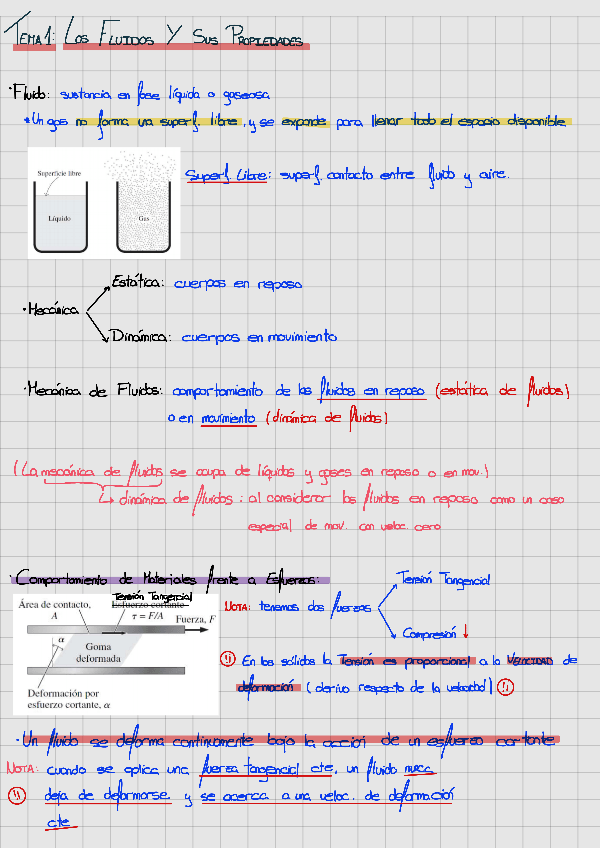 TEMA 1: LOS FLUIDOS Y SUS PROPIEDADES
· Fluido: sustancia en fase líquida o gaseosa
* Un gas no forma una superf. libre, y se expande para llenar todo el espacio disponible
Superficie libre
Líquido
Gas
Superf. Libre: superf. contacto entre fluido y aire.
Estática: cuerpos en reposo
· Mecánica
Dinámica: cuerpos en movimiento
· Mecánica de Fluidos: comportamiento de los fluidos en reposo (estática de fluidos)
o en movimiento (dinámica de fluidos)
(La mecánica de fluidos se ocupa de líquidos y gases en reposo o en mov.)
↳ dinámica de fluidos: al considerar los fluidos en reposo como un caso
especial de mov. con veloc. cero
· Comportamiento de Materiales frente a Esfuerzos:
Tensión Tangencial
Área de contacto,
A
Esfuerzo cortante
τ = F/A
Fuerza, F
α
Goma
deformada
Deformación por
esfuerzo cortante, α
NOTA: tenemos dos fuerzas
Tensión Tangencial
Compresión ↓
(!!) En los sólidos la Tensión es proporcional a la VELOCIDAD de
deformación (deriva respecto de la velocidad) (!!)
· Un fluido se deforma continuamente bajo la acción de un esfuerzo cortante
NOTA: cuando se aplica una fuerza tangencial cte, un fluido nunca
(!!) deja de deformarse y se acerca a una veloc. de deformación
cte